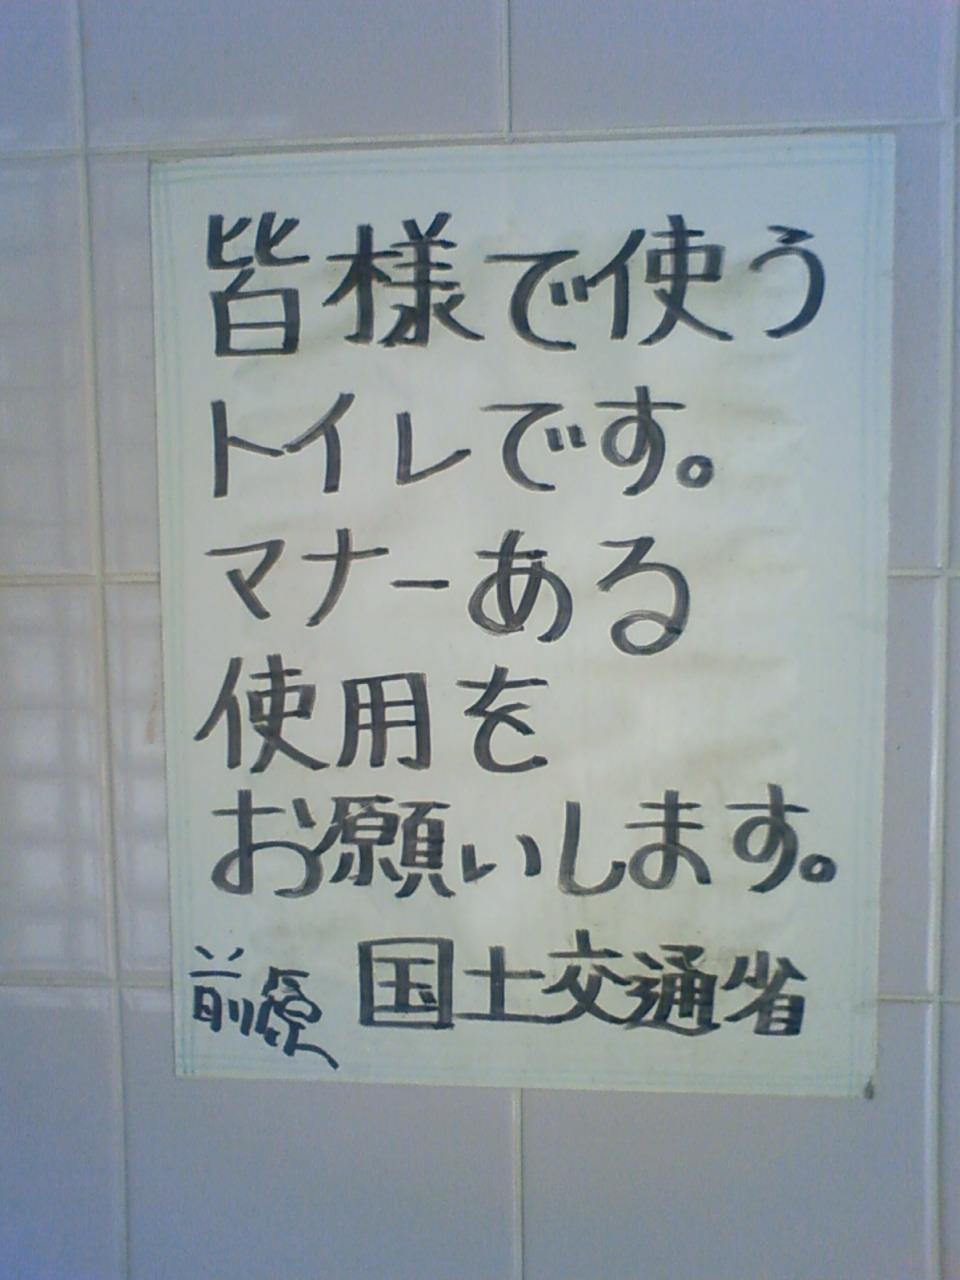 皆様で使う
トイレです。
マナーある
使用を
お願いします。
前原 国土交通省